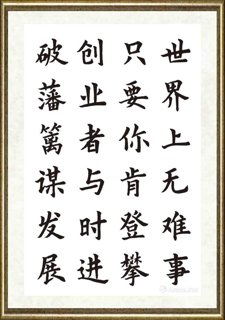 世界上无难事
只要你肯登攀
创业者与时进
破藩篱谋发展